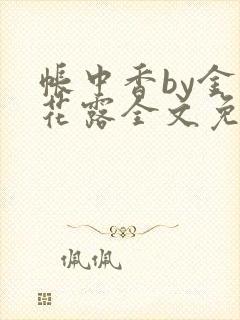 帐中香by金
花露全文免
佩佩